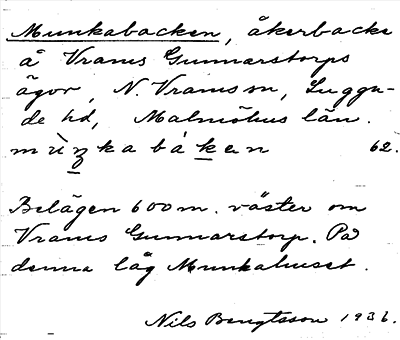 Munkabacken, åkerbacke
å Vrams Gunnarstorps
ägor, N. Vrams sn, Luggu-
de hd, Malmöhus län.
mùŋkabákan 62.
Belägen 600 m. väster om
Vrams Gunnarstorp. På
denna låg Munkahuset.
Nils Bengtsson 1936.